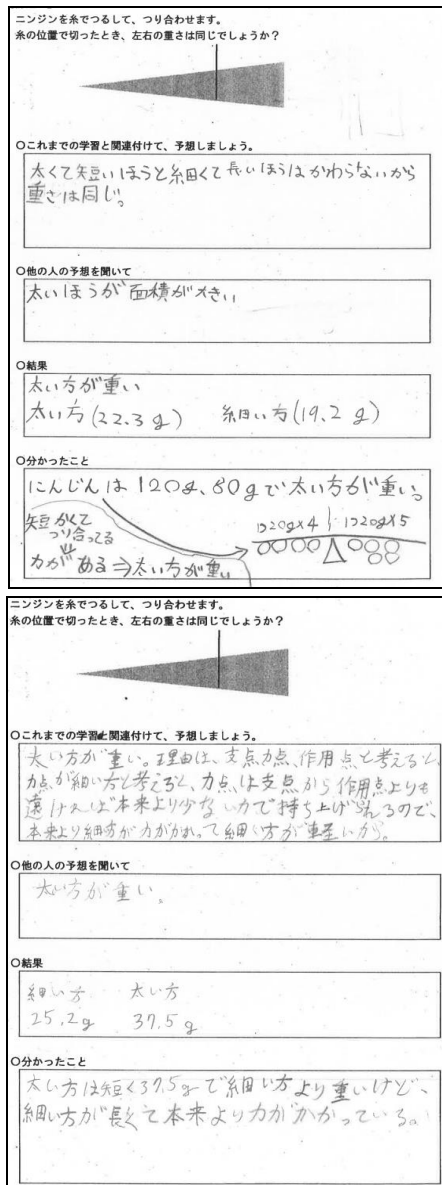 ニンジンを糸でつるして、つり合わせます。
糸の位置で切ったとき、左右の重さは同じでしょうか？
○これまでの学習と関連付けて、予想しましょう。
太くて短いほうと細くて長いほうはかわらないから
重さは同じ。
○他の人の予想を聞いて
太いほうが面積が大きい
○結果
太い方が重い
太い方(22.3g) 細い方(19.2g)
○分かったこと
にんじんは120g、80gで太い方が重い。
短かくて
つり合ってる
力が ある⇒太い方が重い
1つ20g×4 1つ20g×5
ニンジンを糸でつるして、つり合わせます。
糸の位置で切ったとき、左右の重さは同じでしょうか？
○これまでの学習と関連付けて、予想しましょう。
太い方が重い。理由は、支点力点、作用点と考えると、
力点が細い方と考えると、力点は支点から作用点よりも
遠ければ本来より少ない力で持ち上げられるので、
本来より細方が力がかかって細い方が軽いから。
○他の人の予想を聞いて
太い方が重い。
○結果
細い方 太い方
25.2g 37.5g
○分かったこと
太い方は短く37.5gで細い方より重いけど、
細い方が長くて本来より力がかかっている。